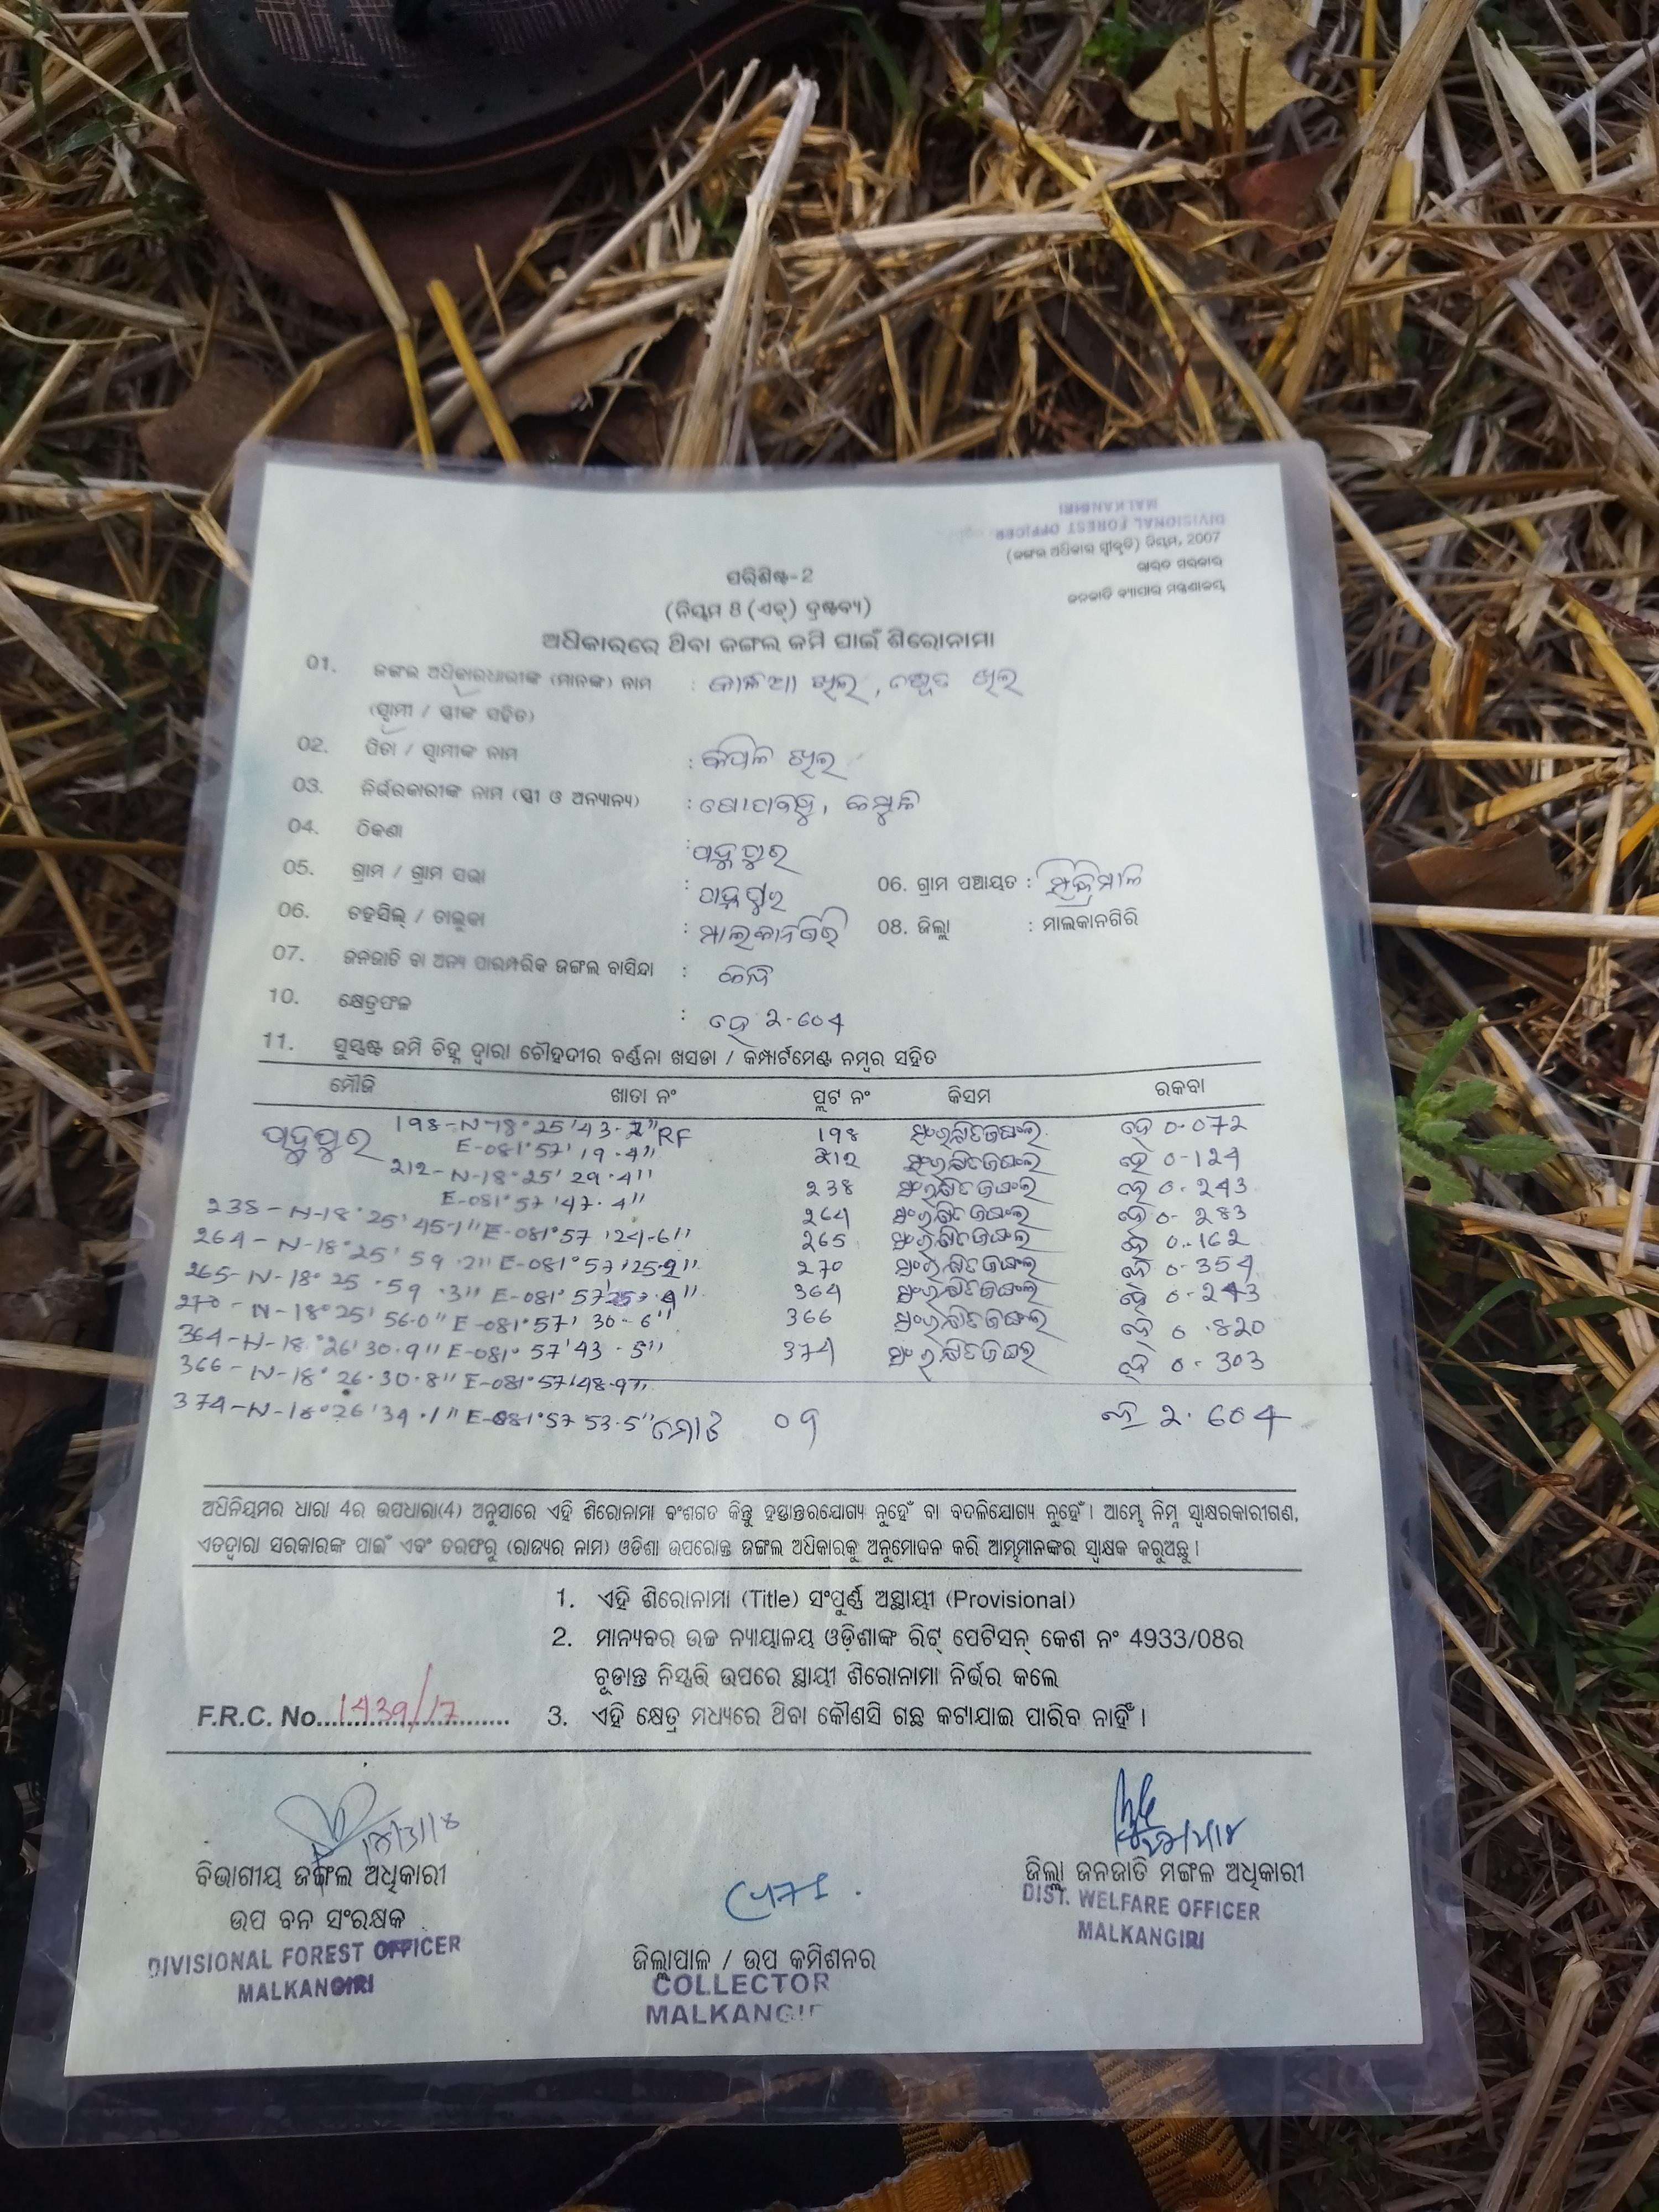 DIVISIONAL FOREST OFFICER
MALKANGIRI
(ଜଙ୍ଗଲ ଅଧିକାର ସ୍ୱୀକୃତି) ନିୟମ, 2007
ଭାରତ ସରକାର
ଜନଜାତି ବ୍ୟାପାର ମନ୍ତ୍ରଣାଳୟ
ପରିଶିଷ୍ଟ-2
(ନିୟମ 8 (ଏଚ୍) ଦ୍ରଷ୍ଟବ୍ୟ)
ଅଧିକାରରେ ଥିବା ଜଙ୍ଗଲ ଜମି ପାଇଁ ଶିରୋନାମା
01. ଜଙ୍ଗଲ ଅଧିକାରଧାରୀଙ୍କ (ମାନଙ୍କ) ନାମ : ଖିଲ, ଖିଲ
(ସ୍ୱାମୀ / ସ୍ତ୍ରୀଙ୍କ ସହିତ)
02. ପିତା / ସ୍ୱାମୀଙ୍କ ନାମ : ଖିଲ
03. ନିର୍ଭରକାରୀଙ୍କ ନାମ (ସ୍ତ୍ରୀ ଓ ଅନ୍ୟାନ୍ୟ) :
04. ଠିକଣା : ପଦ୍ମପୁର
05. ଗ୍ରାମ / ଗ୍ରାମ ସଭା : ପଦ୍ମପୁର 06. ଗ୍ରାମ ପଞ୍ଚାୟତ :
06. ତହସିଲ୍ / ତାଲୁକା : ମାଲକାନଗିରି 08. ଜିଲ୍ଲା : ମାଲକାନଗିରି
07. ଜନଜାତି ବା ଅନ୍ୟ ପାରମ୍ପରିକ ଜଙ୍ଗଲ ବାସିନ୍ଦା :
10. କ୍ଷେତ୍ରଫଳ : ହେ 2.604
11. ସୁସ୍ପଷ୍ଟ ଜମି ଚିହ୍ନ ଦ୍ୱାରା ଚୌହଦୀର ବର୍ଣ୍ଣନା ଖସଡା / କମ୍ପାର୍ଟମେଣ୍ଟ ନମ୍ବର ସହିତ
ମୌଜି ଖାତା ନଂ ପ୍ଲଟ ନଂ କିସମ ରକବା
ପଦ୍ମପୁର 198-N-18°25'43.2" RF 198 ସଂରକ୍ଷିତ ଜଙ୍ଗଲ ହେ 0.072
E-081°57'19.4" 212 ସଂରକ୍ଷିତ ଜଙ୍ଗଲ ହେ 0.124
212-N-18°25'29.4" 238 ସଂରକ୍ଷିତ ଜଙ୍ଗଲ ହେ 0.243
E-081°57'47.4" 264 ସଂରକ୍ଷିତ ଜଙ୍ଗଲ ହେ 0.283
238-N-18°25'45.1" E-081°57'24.6" 265 ସଂରକ୍ଷିତ ଜଙ୍ଗଲ ହେ 0.162
264-N-18°25'59.2" E-081°57'25.2" 270 ସଂରକ୍ଷିତ ଜଙ୍ଗଲ ହେ 0.354
265-N-18°25.59.3" E-081°57' 364 ସଂରକ୍ଷିତ ଜଙ୍ଗଲ ହେ 0.243
270-N-18°25'56.0" E-081°57'30.6" 366 ସଂରକ୍ଷିତ ଜଙ୍ଗଲ ହେ 0.820
364-N-18°26'30.9" E-081°57'43.5" 374 ସଂରକ୍ଷିତ ଜଙ୍ଗଲ ହେ 0.303
366-N-18°26.30.8" E-081°57'48.9"
374-N-18°26'34.1" E-081°57 53.5" ମୋଟ 09 ହେ 2.604
ଅଧିନିୟମର ଧାରା 4ର ଉପଧାରା(4) ଅନୁସାରେ ଏହି ଶିରୋନାମା ବଂଶଗତ କିନ୍ତୁ ହସ୍ତାନ୍ତରଯୋଗ୍ୟ ନୁହେଁ ବା ବଦଳିଯୋଗ୍ୟ ନୁହେଁ। ଆମ୍ଭେ ନିମ୍ନ ସ୍ୱାକ୍ଷରକାରୀଗଣ,
ଏତଦ୍ୱାରା ସରକାରଙ୍କ ପାଇଁ ଏବଂ ତରଫରୁ (ରାଜ୍ୟର ନାମ) ଓଡିଶା ଉପରୋକ୍ତ ଜଙ୍ଗଲ ଅଧିକାରକୁ ଅନୁମୋଦନ କରି ଆତ୍ମମାନଙ୍କର ସ୍ୱାକ୍ଷକ କରୁଅଛୁ।
1. ଏହି ଶିରୋନାମା (Title) ସଂପୂର୍ଣ୍ଣ ଅସ୍ଥାୟୀ (Provisional)
2. ମାନ୍ୟବର ଉଚ୍ଚ ନ୍ୟାୟାଳୟ ଓଡ଼ିଶାଙ୍କ ରିଟ୍ ପେଟିସନ୍ କେଶ ନଂ 4933/08ର
ଚୂଡାନ୍ତ ନିସ୍ପତ୍ତି ଉପରେ ସ୍ଥାୟୀ ଶିରୋନାମା ନିର୍ଭର କଲେ
F.R.C. No. 1439/17 3. ଏହି କ୍ଷେତ୍ର ମଧ୍ୟରେ ଥିବା କୌଣସି ଗଛ କଟାଯାଇ ପାରିବ ନାହିଁ।
ବିଭାଗୀୟ ଜଙ୍ଗଲ ଅଧିକାରୀ
ଉପ ବନ ସଂରକ୍ଷକ
DIVISIONAL FOREST OFFICER
MALKANGIRI
ଜିଲ୍ଲାପାଳ / ଉପ କମିଶନର
COLLECTOR
MALKANGIR
ଜିଲ୍ଲା ଜନଜାତି ମଙ୍ଗଳ ଅଧିକାରୀ
DIST. WELFARE OFFICER
MALKANGIRI